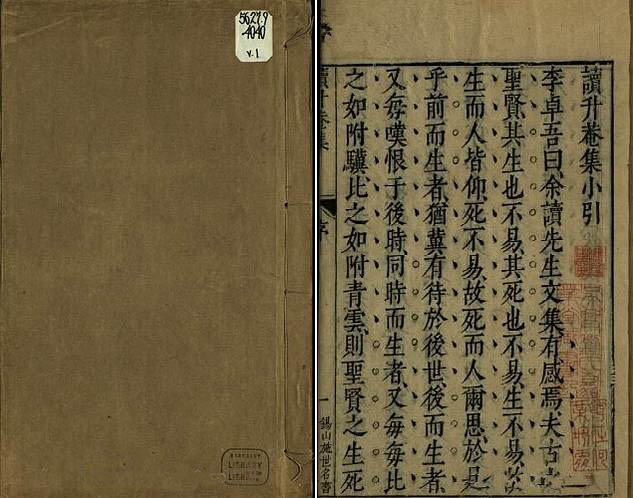 5627.9
4040
v.1
LIBRARY
讀升菴集小引
李卓吾曰余讀先生文集有感焉夫古
聖賢其生也不易其死也不易生不易故
生而人皆仰死不易故死而人爾思於是
乎前而生者猶冀有待於後世後而生者
又每嘆恨于後時同時而生者又每每比
之如附驥比之如附青雲則聖賢之生死
讀升菴集
序
一
錫山施世名書